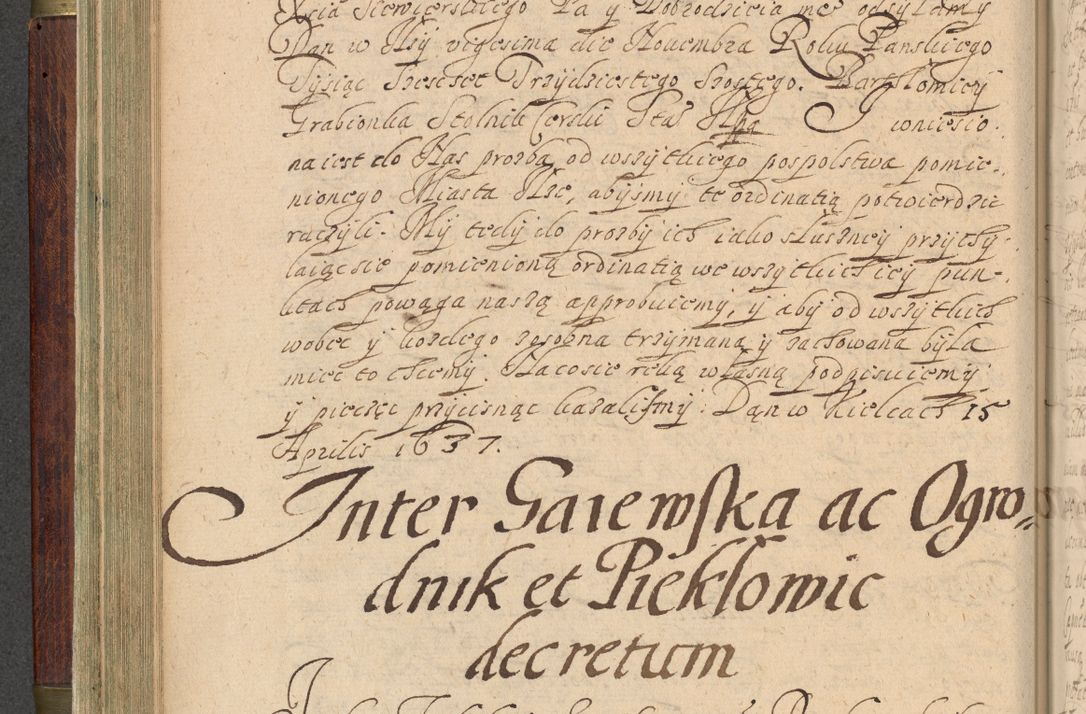 Xcia Siewierskiego Pa y Dobrodzieia me odsyłamy
Dan w Ilży vigesima die Nouembra Roku Panskiego
Tysiąc Szescset Trzydziestego Szostego. Bartłomiey
Grabionka Stolnik Czerski Stas Ilża I wniesio.
na iest do Nas prozba od wszytkiego pospolstwa pomie.
nionego Miasta Nse, abysmy te ordinatią potwierdzic
raczyli. My tedy do prozby ich iako słuszney przychy
laiąc sie pomienioną ordinatią we wszytkich iey pun-
ktach powagą naszą approbuiemy, y aby od wszytkich
wobec y kozdego zosobna trzymaną y zachowana była
miec to chcemy. Na co sie ręką własną podpisuiemy
y pieczęc przycisnąc kazalismy. Dan w Kielcach 15
Aprilis 1637.
Inter Gaiewska ac Ogro-
dnik et Piekłowic
decretum